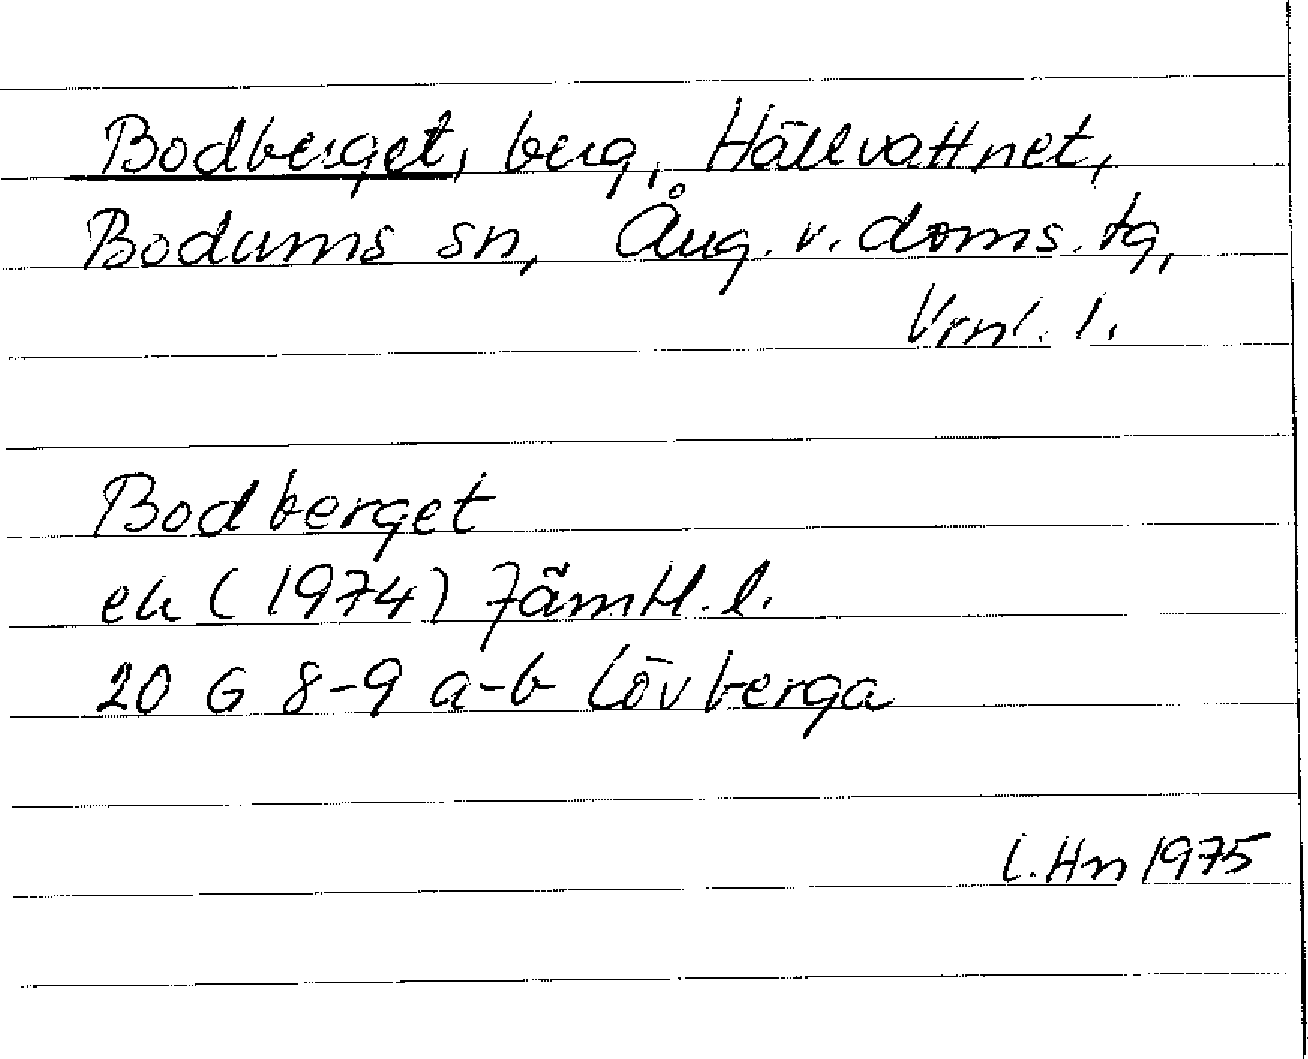 Bodberget, berg, Hällvattnet,
Bodums sn, Ång. v. doms. tg,
Vrnl. l.
Bodberget
ek (1974) Jämtl. l.
20 G 8-9 a-b Lövberga
L. Hn 1975